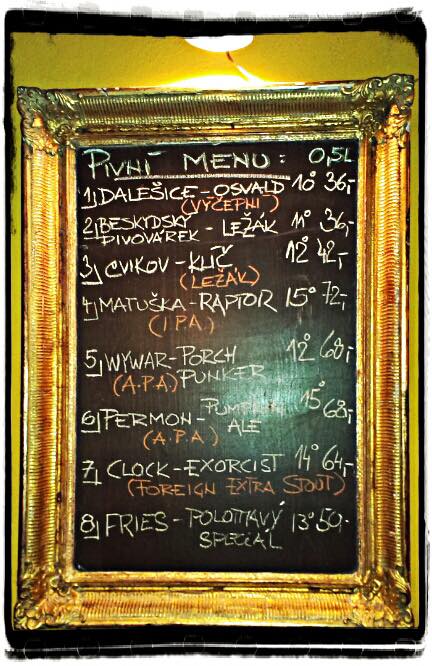 PIVNÍ MENU: 0,5L
1) DALEŠICE - OSVALD 10° 36,-
(VÝČEPNÍ)
2) BESKYDSKÝ
PIVOVÁREK - LEŽÁK 11° 36,-
3) CVIKOV - KLÍČ 12° 42,-
(LEŽÁK)
4) MATUŠKA - RAPTOR 15° 72,-
(IPA)
5) WYWAR - PORCH 12° 68,-
(A.P.A) PUNKER
6) PERMON - PUMPKIN 15° 68,-
(A.P.A) ALE
7) CLOCK - EXORCIST 14° 64,-
(FOREIGN EXTRA STOUT)
8) FRIES - POLOTMAVÝ 13° 50,-
SPECIÁL